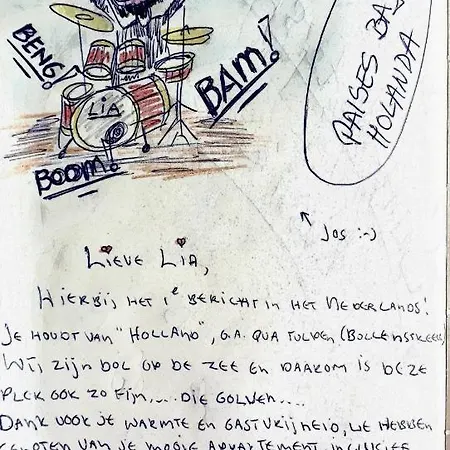 BENG!
BAM!
LIA
BOOM!
PAISES BAJ
HOLANDA
JOS :-)
LIEVE LIA,
HIERBIJ HET 1e BERICHT IN HET NEDERLANDS!
JE HOUDT VAN "HOLLAND", O.A. QUA TULPEN (BOLLENSTREEK)
WIJ ZIJN DOL OP DE ZEE EN DAAROM IS DEZE
PLEK OOK ZO FIJN,... DIE GOLVEN....
DANK VOOR JE WARMTE EN GASTVRIJHEID, WE HEBBEN
GENOTEN VAN JE MOOIE APPARTEMENT INCLUSIEF